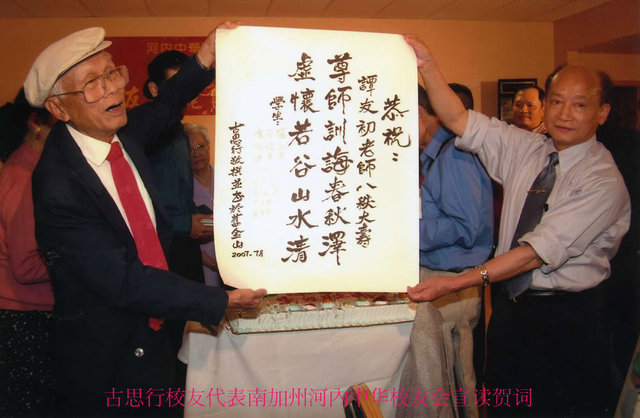 河內中
恭祝：
譚友初老師八秩大壽
尊師訓誨春秋澤
虛懷若谷山水清
學生：
古思行敬撰並書於舊金山
2007.7月
古思行校友代表南加州河内中华校友会宣读贺词